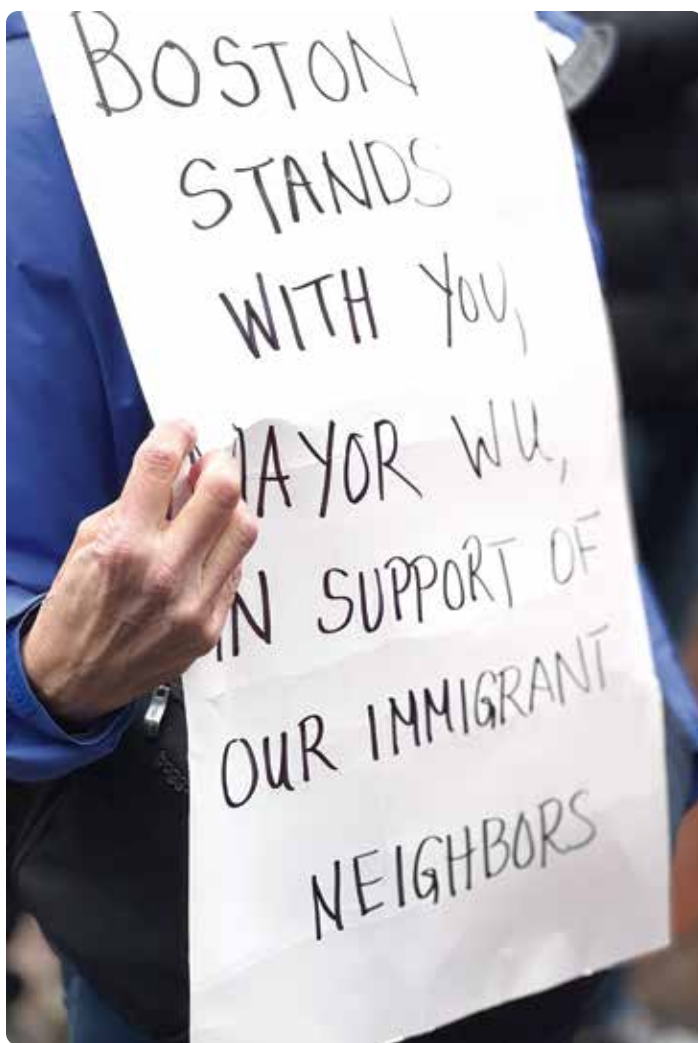 BOSTON
STANDS
WITH YOU,
MAYOR WU,
IN SUPPORT OF
OUR IMMIGRANT
NEIGHBORS